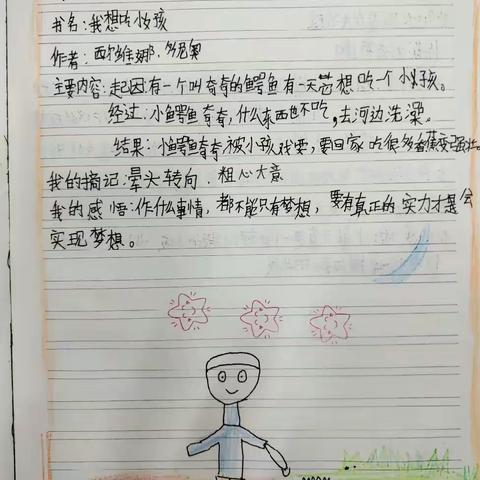 书名:我想吃小孩
作者:西尔维娜.多尼奥
主要内容:起因有一个叫奇奇的鳄鱼有一天想吃一个小孩。
经过:小鳄鱼奇奇,什么东西也不吃,去河边洗澡。
结果:小鳄鱼奇奇被小孩戏耍,要回家吃很多香蕉变强壮。
我的摘记:晕头转向.粗心大意
我的感悟:作什么事情,都不能只有梦想,要有真正的实力才是会
实现梦想。